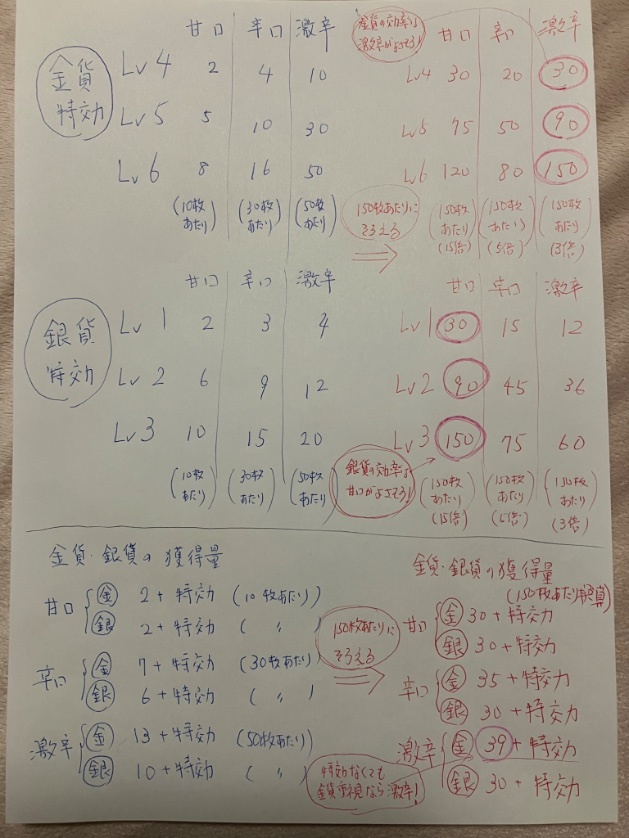 甘口 辛口 激辛
金貨特効
Lv4 2 4 10
Lv5 5 10 30
Lv6 8 16 50
(10枚あたり) (30枚あたり) (50枚あたり)
金貨の効率は激辛がよさそう!
甘口 辛口 激辛
Lv4 30 20 30
Lv5 75 50 90
Lv6 120 80 150
150枚あたりにそろえる
(150枚あたり)(15倍) (150枚あたり)(5倍) (150枚あたり)(3倍)
甘口 辛口 激辛
銀貨特効
Lv1 2 3 4
Lv2 6 9 12
Lv3 10 15 20
(10枚あたり) (30枚あたり) (50枚あたり)
甘口 辛口 激辛
Lv1 30 15 12
Lv2 90 45 36
Lv3 150 75 60
銀貨の効率は甘口がよさそう!
(150枚あたり)(15倍) (150枚あたり)(5倍) (150枚あたり)(3倍)
金貨・銀貨の獲得量
甘口 金 2+特効 (10枚あたり)
銀 2+特効 ( 〃 )
辛口 金 7+特効 (30枚あたり)
銀 6+特効 ( 〃 )
激辛 金 13+特効 (50枚あたり)
銀 10+特効 ( 〃 )
150枚あたりにそろえる
特効なくても金貨重視なら激辛!
金貨・銀貨の獲得量
(150枚あたり換算)
甘口 金 30+特効
銀 30+特効
辛口 金 35+特効
銀 30+特効
激辛 金 39+特効
銀 30+特効